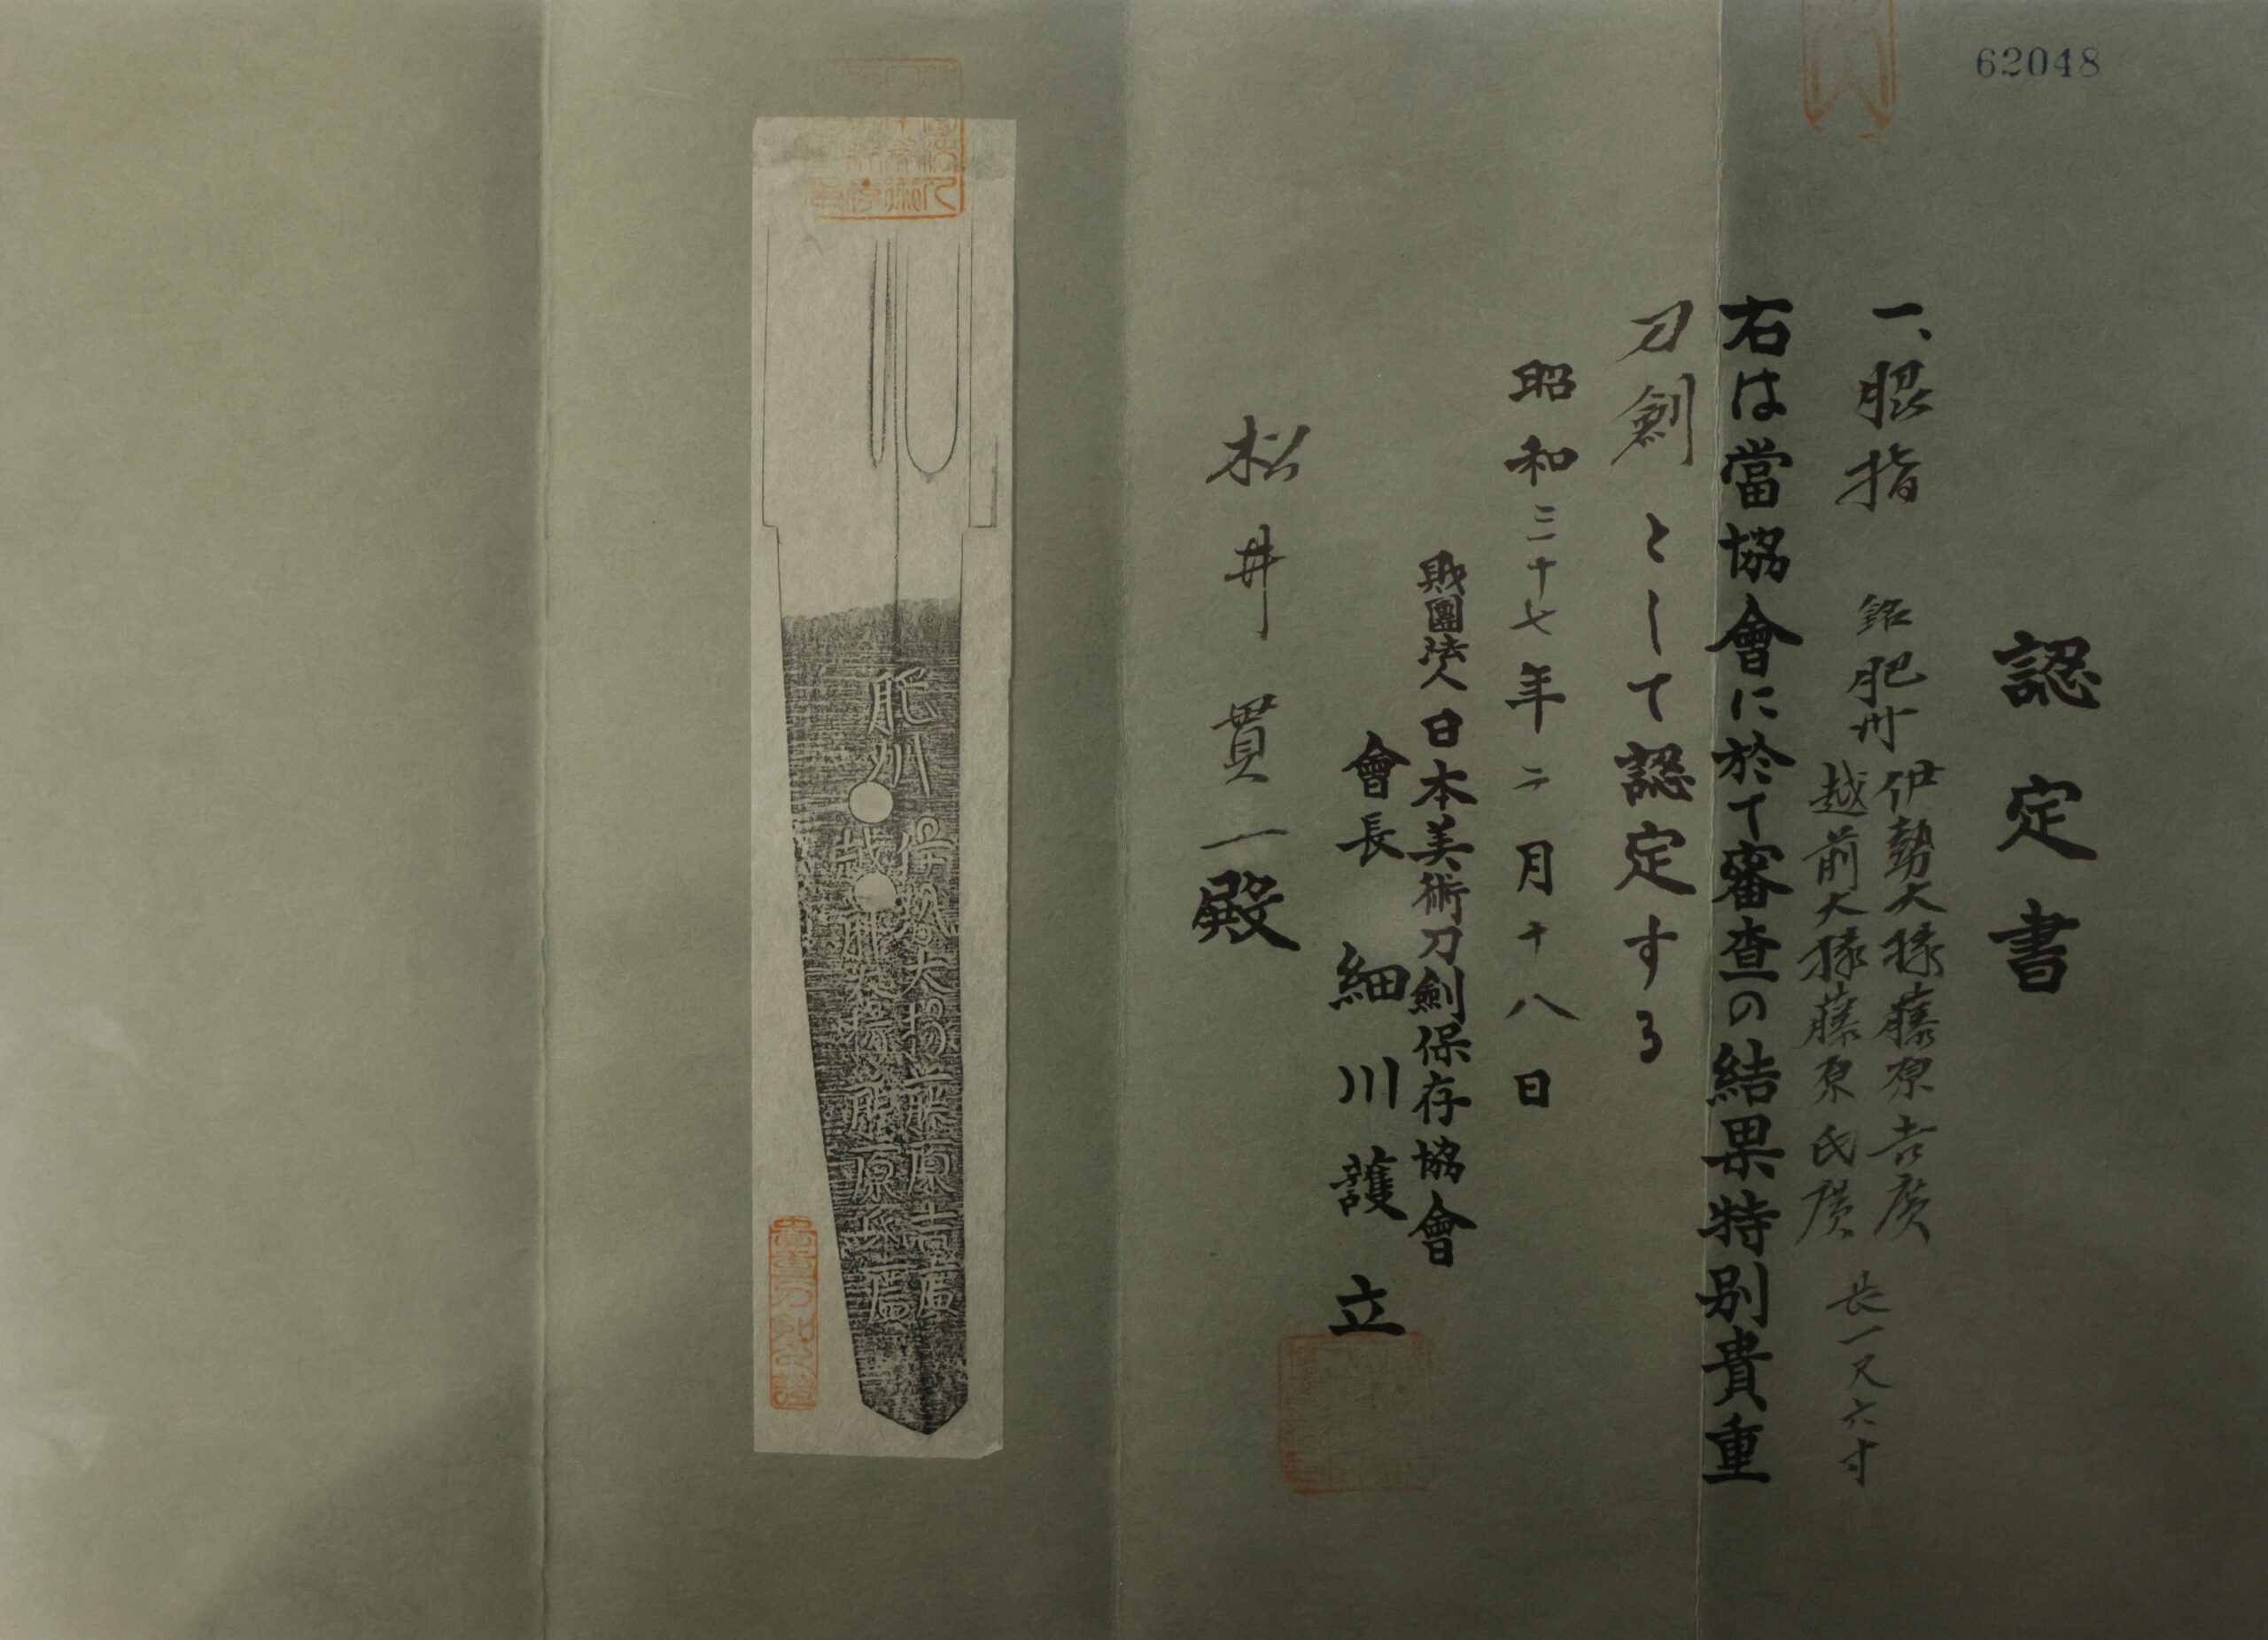 62048
認定書
一、脇指 銘 肥州 伊勢大掾藤原吉廣
越前大掾藤原氏廣
長一尺六寸
右は當協會に於て審査の結果特別貴重
刀劍として認定する
昭和三十七年二月十八日
財團法人日本美術刀劍保存協會
會長 細川護立
松井貫一殿
肥州
大掾藤原吉廣
大掾藤原氏廣